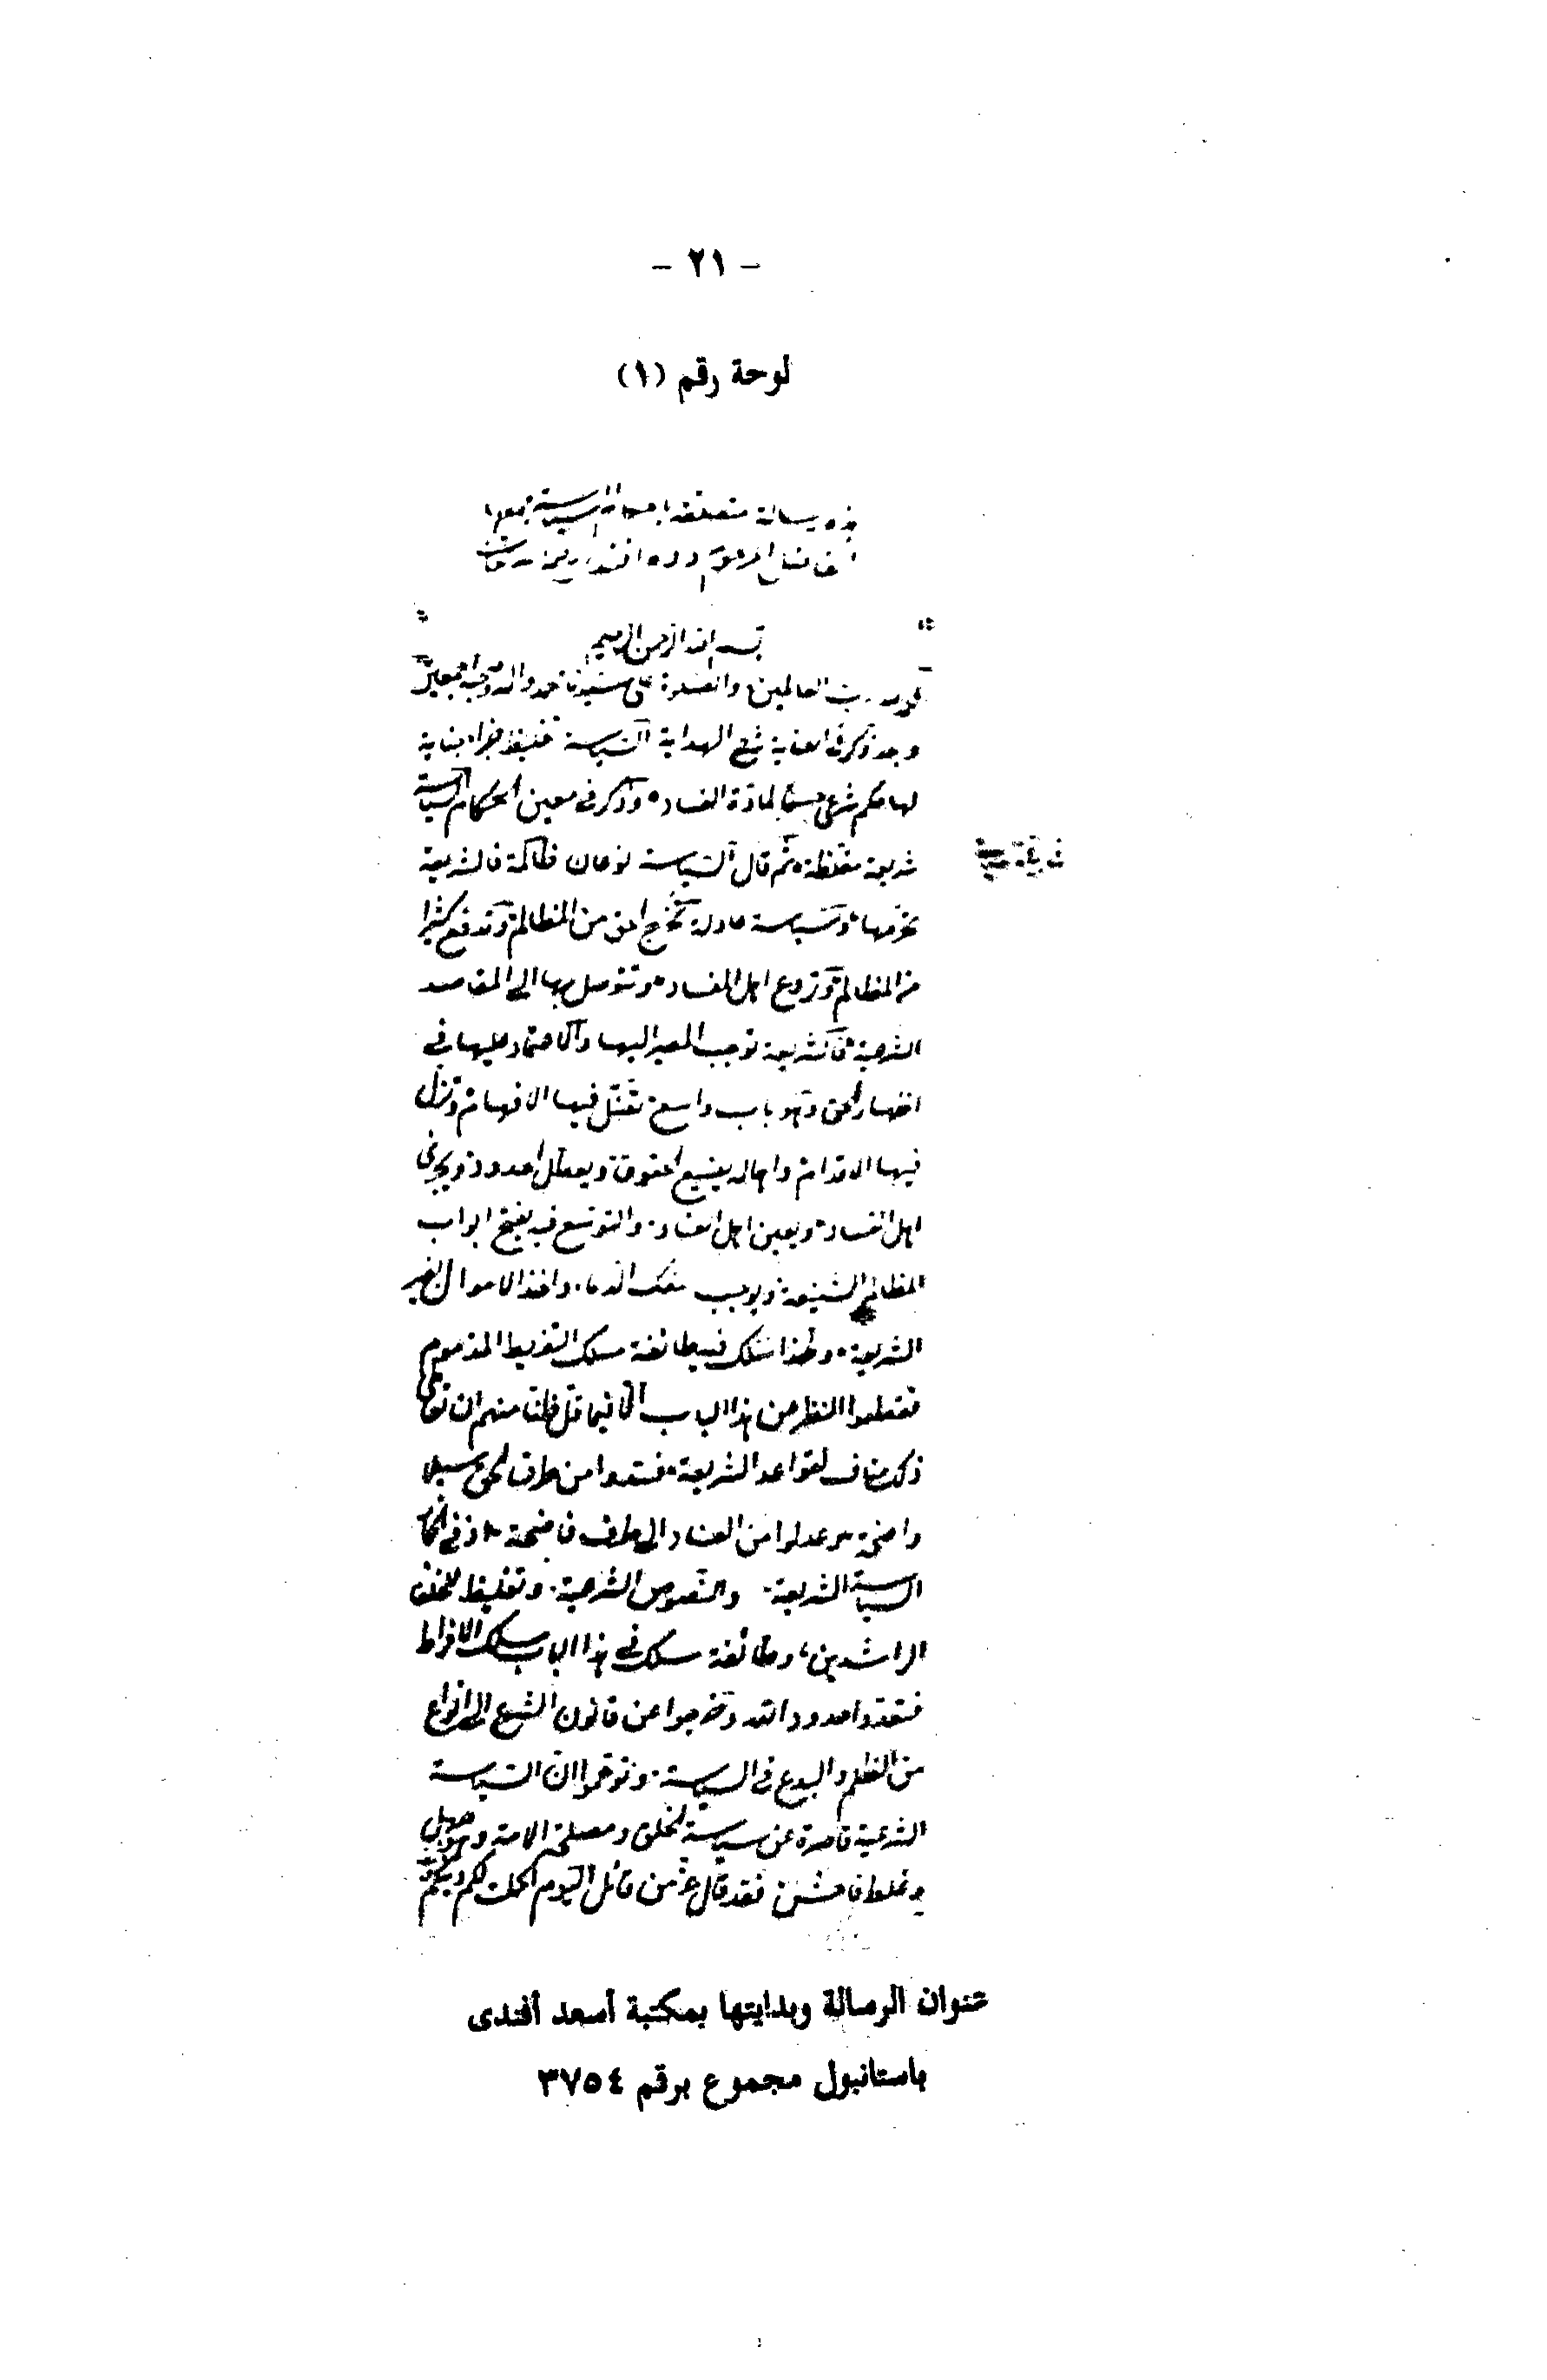 - ٢١ -
لوحة رقم (١)
هذه رسالة متعلقة باحكام السياسة جمعها
الفاضل المرحوم دده افندى
بسم الله الرحمن الرحيم
الحمد لله رب العالمين والصلوة على سيدنا محمد واله وصحبه اجمعين
وبعد ذكر فى العناية شرح الهداية السياسة تغليظ جزاء جناية
لها حكم شرعى حسما لمادة الفساد وذكر فى معين الحكام السياسة
شريعة مغلظة ثم قال السياسة نوعان ظالمة فالشريعة
تحرمها وسياسة عادلة تخرج الحق من المظالم وتدفع كثيرا
من المظالم وتردع اهل الفساد وتتوصل بها الى المقاصد
الشرعية فالشريعة توجب المصير اليها والاعتماد عليها فى
اظهار الحق وهو باب واسع تضل فيها الافهام وتزل
فيها الاقدام واهماله يضيع الحقوق ويعطل الحدود ويجرئ
اهل الفساد ويعين اهل العناد والتوسع فيه يفتح ابواب
المظالم الشنيعة ويوجب سفك الدماء واخذ الاموال بغير
الشريعة ولهذا سلك فيه طائفة مسلك التفريط المذموم
فقطعوا النظر عن هذا الباب الا فيما قل ظنا منهم ان تعاطى
ذلك مناف لقواعد الشريعة فسدوا من طرق الحق سبيلا
واضحة وعدلوا من العناد الى طرف فاضحة اذ فى انكار
السياسة الشريعة والنصوص الشرعية وتغليظ للخلفاء
الراشدين وطائفة سلك فى هذا الباب مسلك الافراط
فتعدوا حدود الله وخرجوا عن قانون الشرع الى انواع
من الظلم والبدع فى السياسة وتوهموا ان السياسة
الشرعية قاصرة عن سياسة الخلق ومصلحة الامة وهو جهل
وغلط فاحش فقد قال عز من قائل اليوم اكملت لكم دينكم
عنوان الرسالة وبدايتها بمكتبة أسعد أفندى
باستانبول مجموع برقم ٣٧٥٤